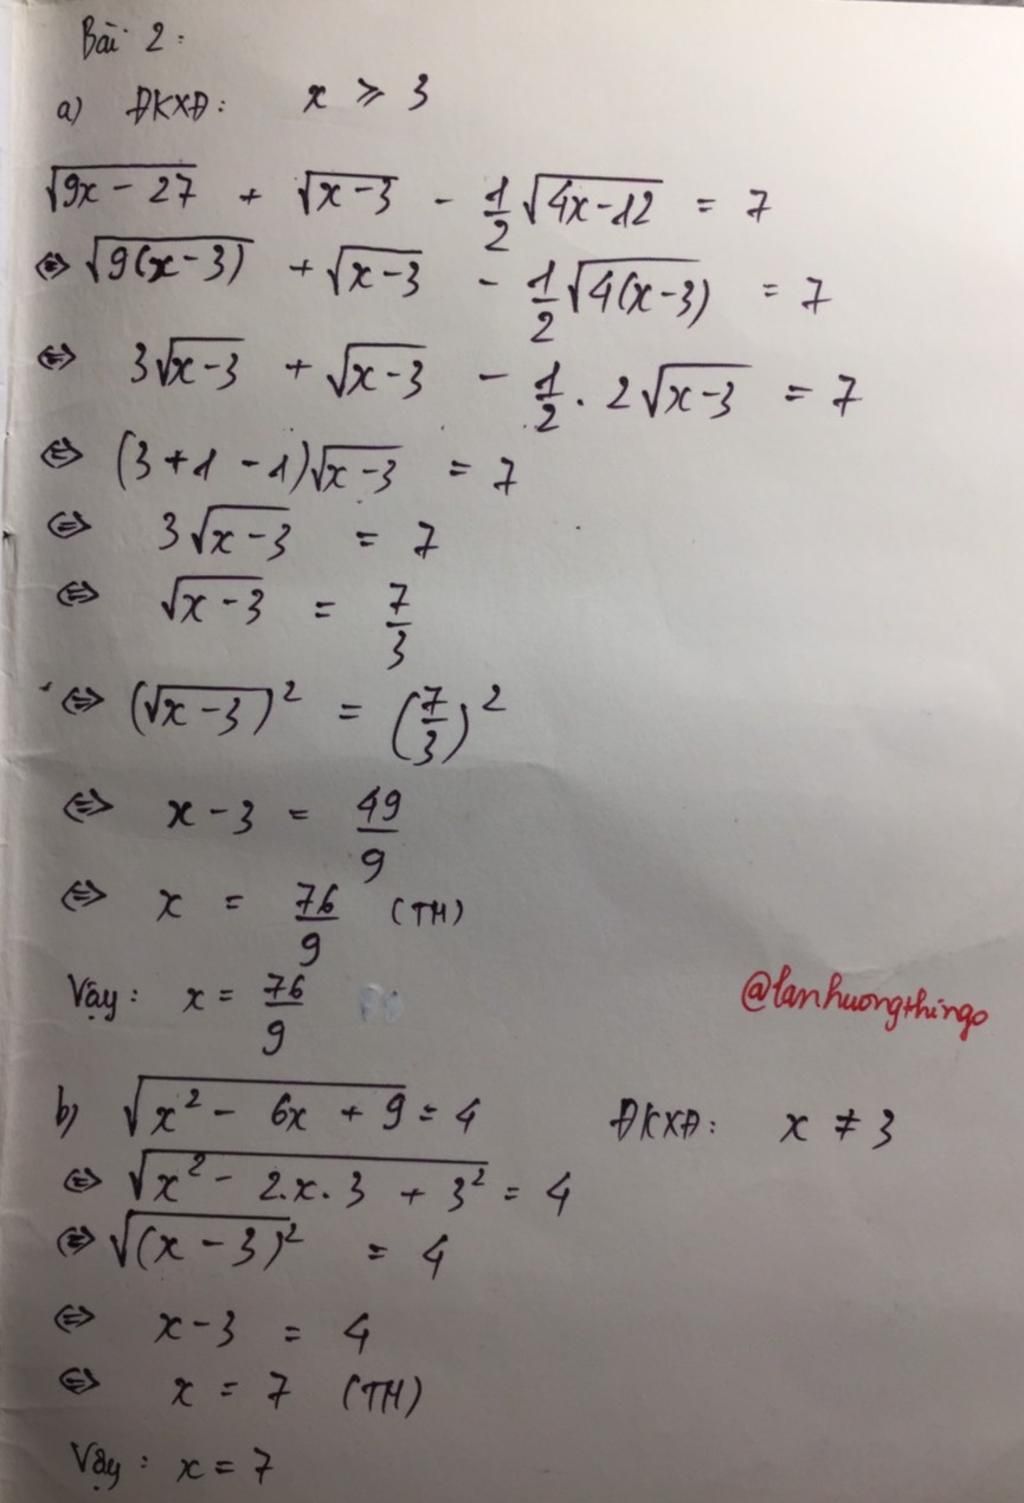 Bài 2:
a) ĐKXĐ: x ⩾ 3
√(9x - 27) + √(x-3) - 1/2 √(4x-12) = 7
⇔ √(9(x-3)) + √(x-3) - 1/2 √(4(x-3)) = 7
⇔ 3√(x-3) + √(x-3) - 1/2 . 2√(x-3) = 7
⇔ (3+1-1)√(x-3) = 7
⇔ 3√(x-3) = 7
⇔ √(x-3) = 7/3
⇔ (√(x-3))² = (7/3)²
⇔ x-3 = 49/9
⇔ x = 76/9 (TM)
Vậy: x = 76/9
@lanhuongthingo
b) √(x² - 6x + 9) = 4 ĐKXĐ: x ≠ 3
⇔ √(x² - 2.x.3 + 3²) = 4
⇔ √((x-3)²) = 4
⇔ x-3 = 4
⇔ x = 7 (TM)
Vậy: x = 7